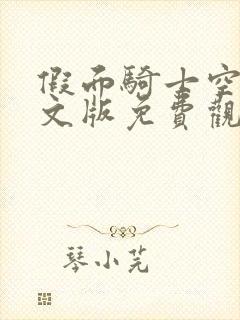 假面騎士空
文版免費觀
琴小芄